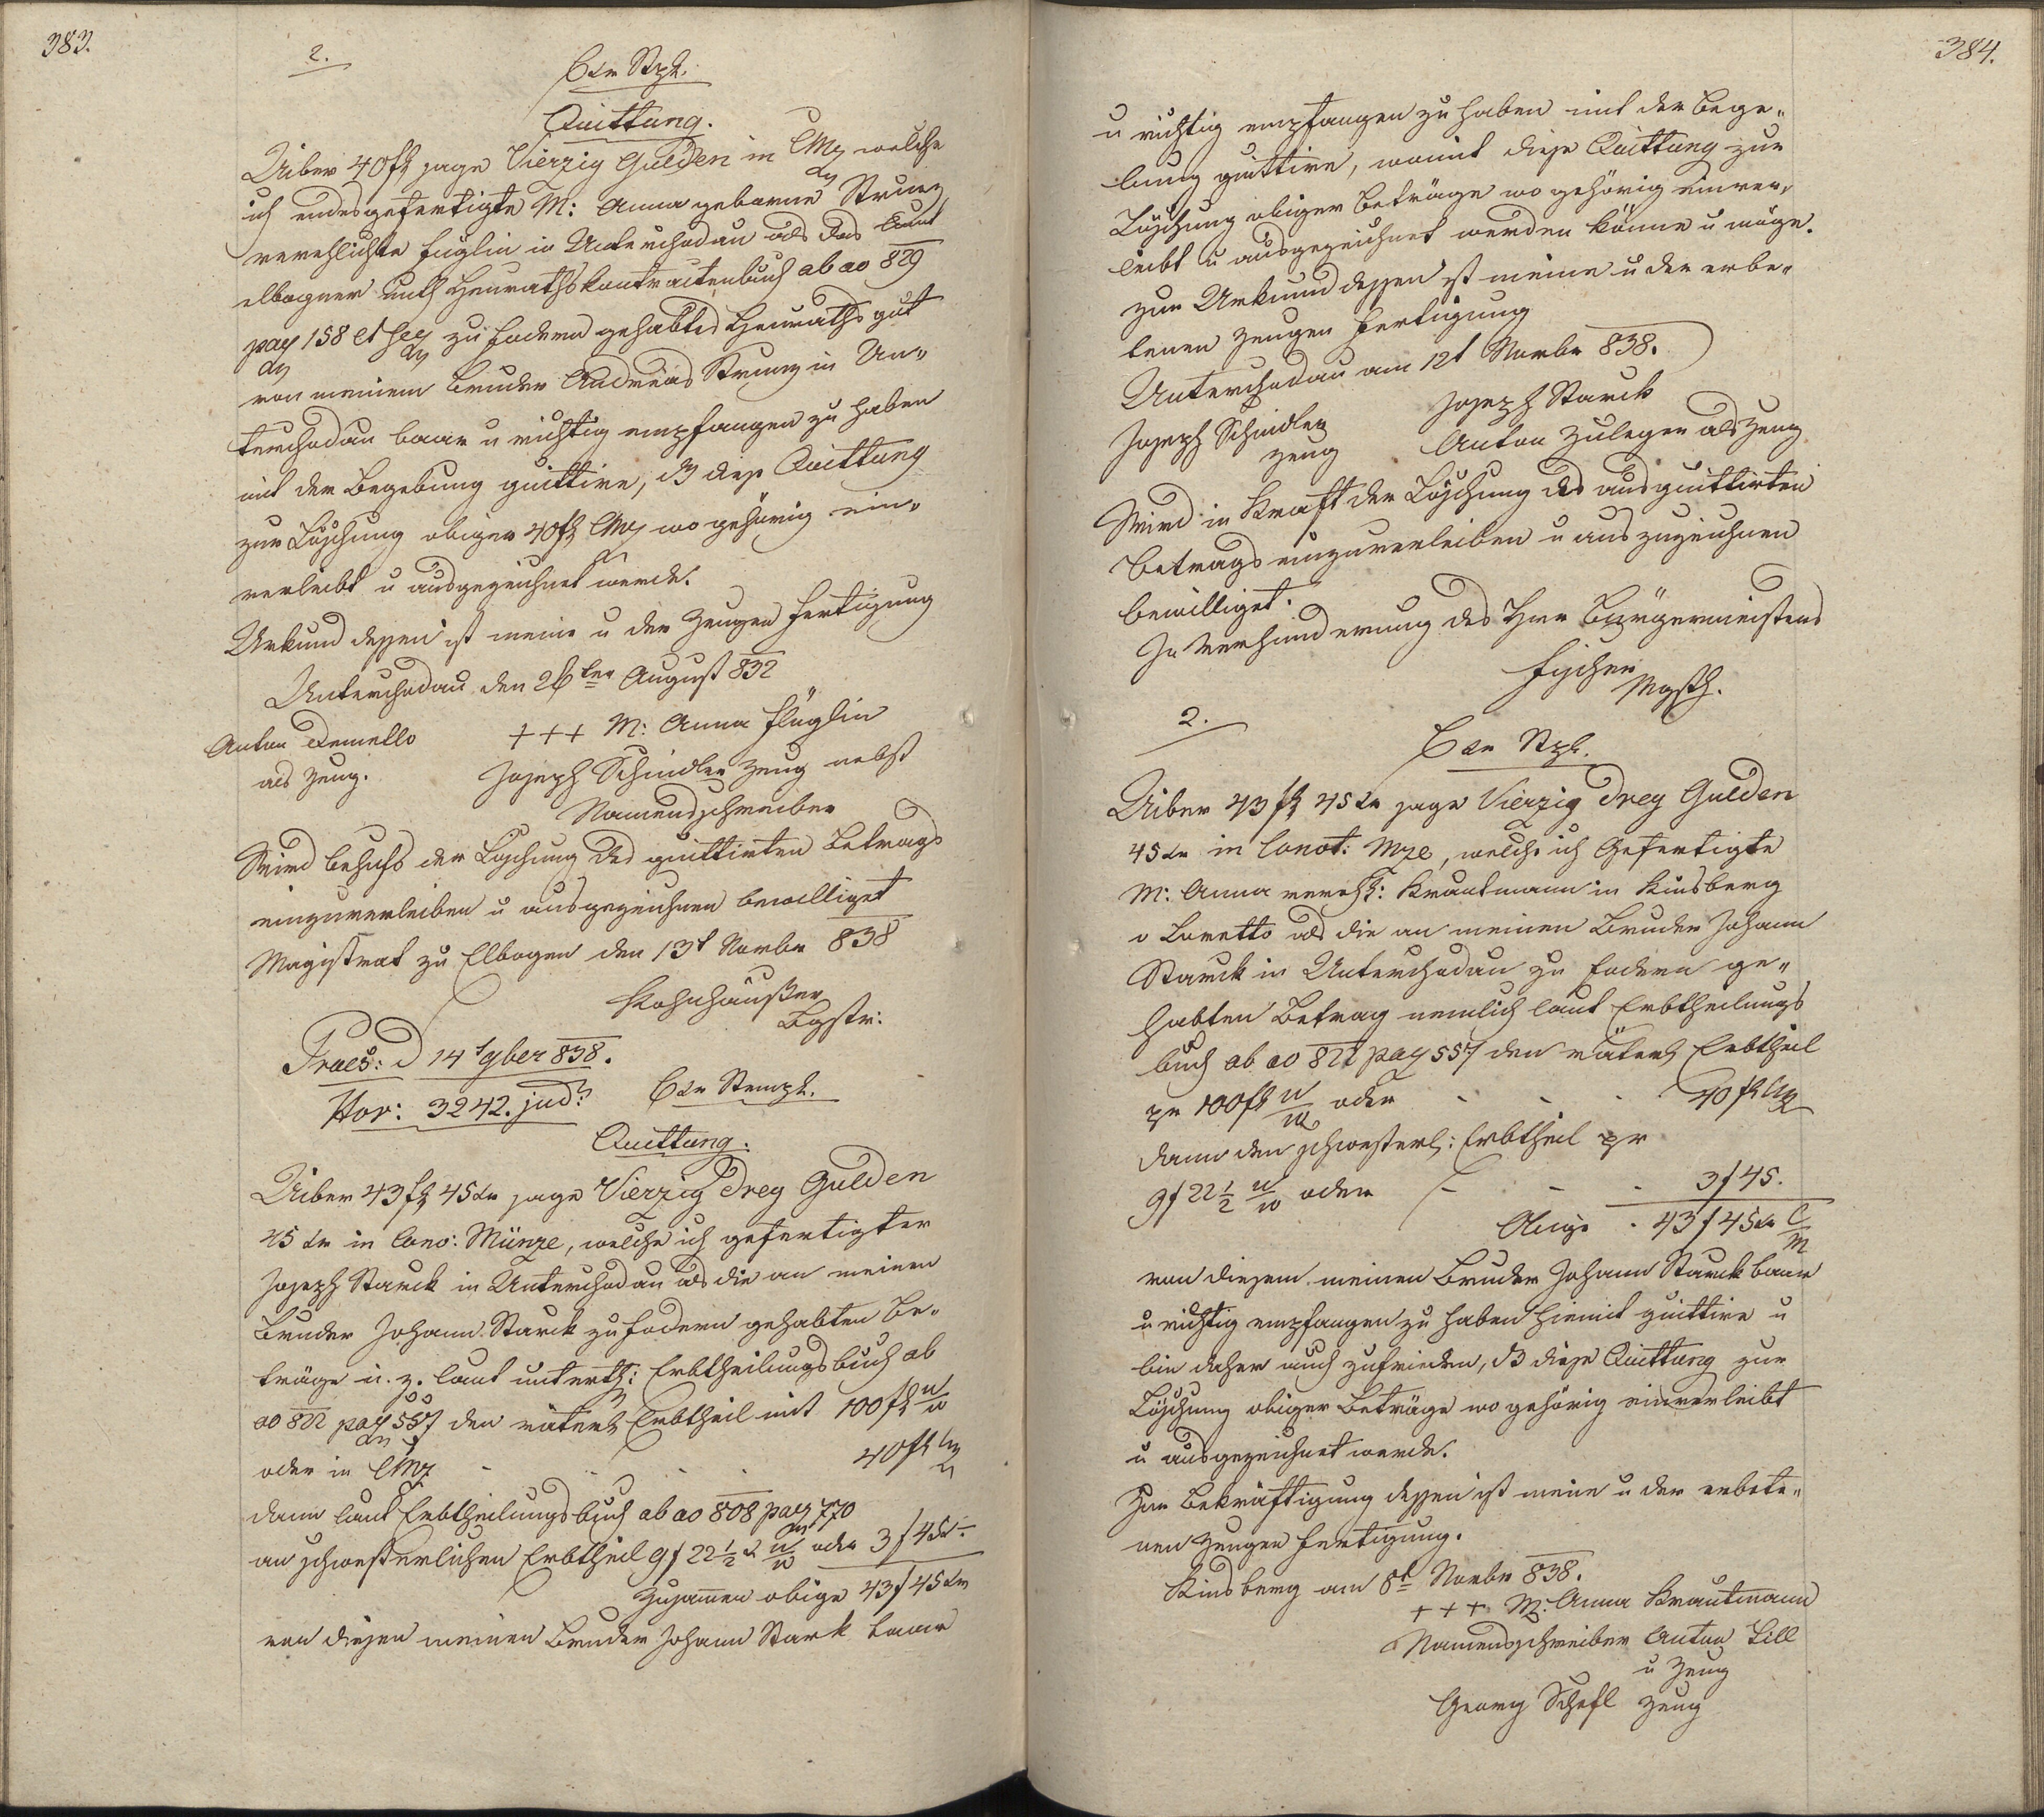 383.
2.
6 Xr Stpl.
Quittung.
Uiber 40 f sage Vierzig Gulden in CMz welche
ich endesgefertigte M: Anna geborne Strunz
verehlichte Füglin in Unterchodau als das laut
elbogner unth Heurathskontraktenbuch ab ao 829
pag 158 et seq zu fodern gehabtes Heurathsgut
von meinem Bruder Andreas Strunz in Un-
terchodau baar u richtig empfangen zu haben
mit der Begebung quittire, dß diese Quittung
zur Löschung obiger 40 f CMz wo gehörig ein-
verleibt u ausgezeichnet werde.
Urkund dessen ist meine u der Zeugen Fertigung
Unterchodau den 26ten August 832
Anton +++ M: Anna Füglin
als Zeug. Joseph Schindler Zeug nebst
Namensschreiber
Wird behufs der Löschung des quittirten Betrags
einzuverleiben u auszuzeichnen bewilliget
Magistrat zu Elbogen den 13t Novbr 838
Kohnhäußer
Bgstr:
Praes: d 14t 9ber 838.
Nor: 3242. jud:
6 Xr Stempl.
Quittung.
Uiber 43 f 45 Xr sage Vierzig drey Gulden
45 Xr in Conv: Münze, welche ich gefertigter
Joseph Starck in Unterchodau als die an meinen
Bruder Johann Starck zu fodern gehabten Be-
träge u. z. laut unterth: Erbtheilungsbuch ab
ao 822 pag 557 den väterl Erbtheil mit 100 f W W
oder in CMz - - - - 40 f CMz
dann laut Erbtheilungsbuch ab ao 808 pag 770
an schwesterlichen Erbtheil 9 f 22 1/2 x W W oder 3 f 45 x
Zusammen obige 43 f 45 Xr
von diesen meinen Bruder Johann Stark baar
384.
u richtig empfangen zu haben mit der Bege-
bung quittire, womit diese Quittung zur
Löschung obiger Beträge wo gehörig einver-
leibt u ausgezeichnet werden könne u möge.
Zur Urkund dessen ist meine u der erbe-
tenen Zeugen Fertigung
Unterchodau am 12t Novbr 838.
Joseph Starck
Joseph Schindler
Zeug Anton Zuleger als Zeug
Wird in Kraft der Löschung des ausquittirten
Betrags einzuverleiben u auszuzeichnen
bewilliget.
In Verhinderung des Hrn Bürgermeisters
Fischer
Mgsth.
2.
6 Xr Stpl.
Uiber 43 f 45 Xr sage Vierzig drey Gulden
45 Xr in Convt: Mze, welche ich Gefertigte
M: Anna verehl: Krautmann in Kinsberg
o Loretto als die an meinen Bruder Johann
Starck in Unterchodau zu fodern ge-
habten Betrag nemlich laut Erbtheilungs
buch ab ao 822 pag 557 den väterl Erbtheil
pr 100 f W W oder - - - 40 f CMz
dann den schwesterl: Erbtheil pr
9 f 22 1/2 W W oder - - - 3 f 45.
Obige - 43 f 45 Xr C M
von diesem meinen Bruder Johann Starck baar
u richtig empfangen zu haben hiemit quittire u
bin daher auch zufrieden, dß diese Quittung zur
Löschung obiger Beträge wo gehörig einverleibt
u ausgezeichnet werde.
Zur Bekräftigung dessen ist meine u der erbete-
nen Zeugen Fertigung.
Kinsberg am 8t Novbr 838.
+++ M: Anna Krautmann
Namensschreiber Anton Lill
u Zeug
Georg Zeug